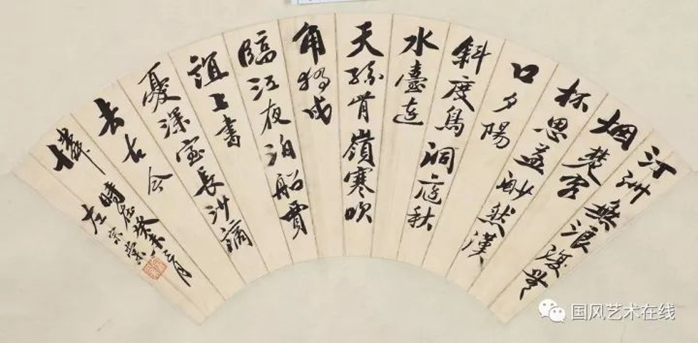 汀洲無浪復無
烟楚客
相思益渺然漢
口夕陽
斜度鳥洞庭秋
水遠連
天孤背嶺寒吹
角獨戍
臨江夜泊船賈
誼上書
憂漢室長沙謫
去古今
憐
時在癸未二月
左宗棠
国风艺术在线